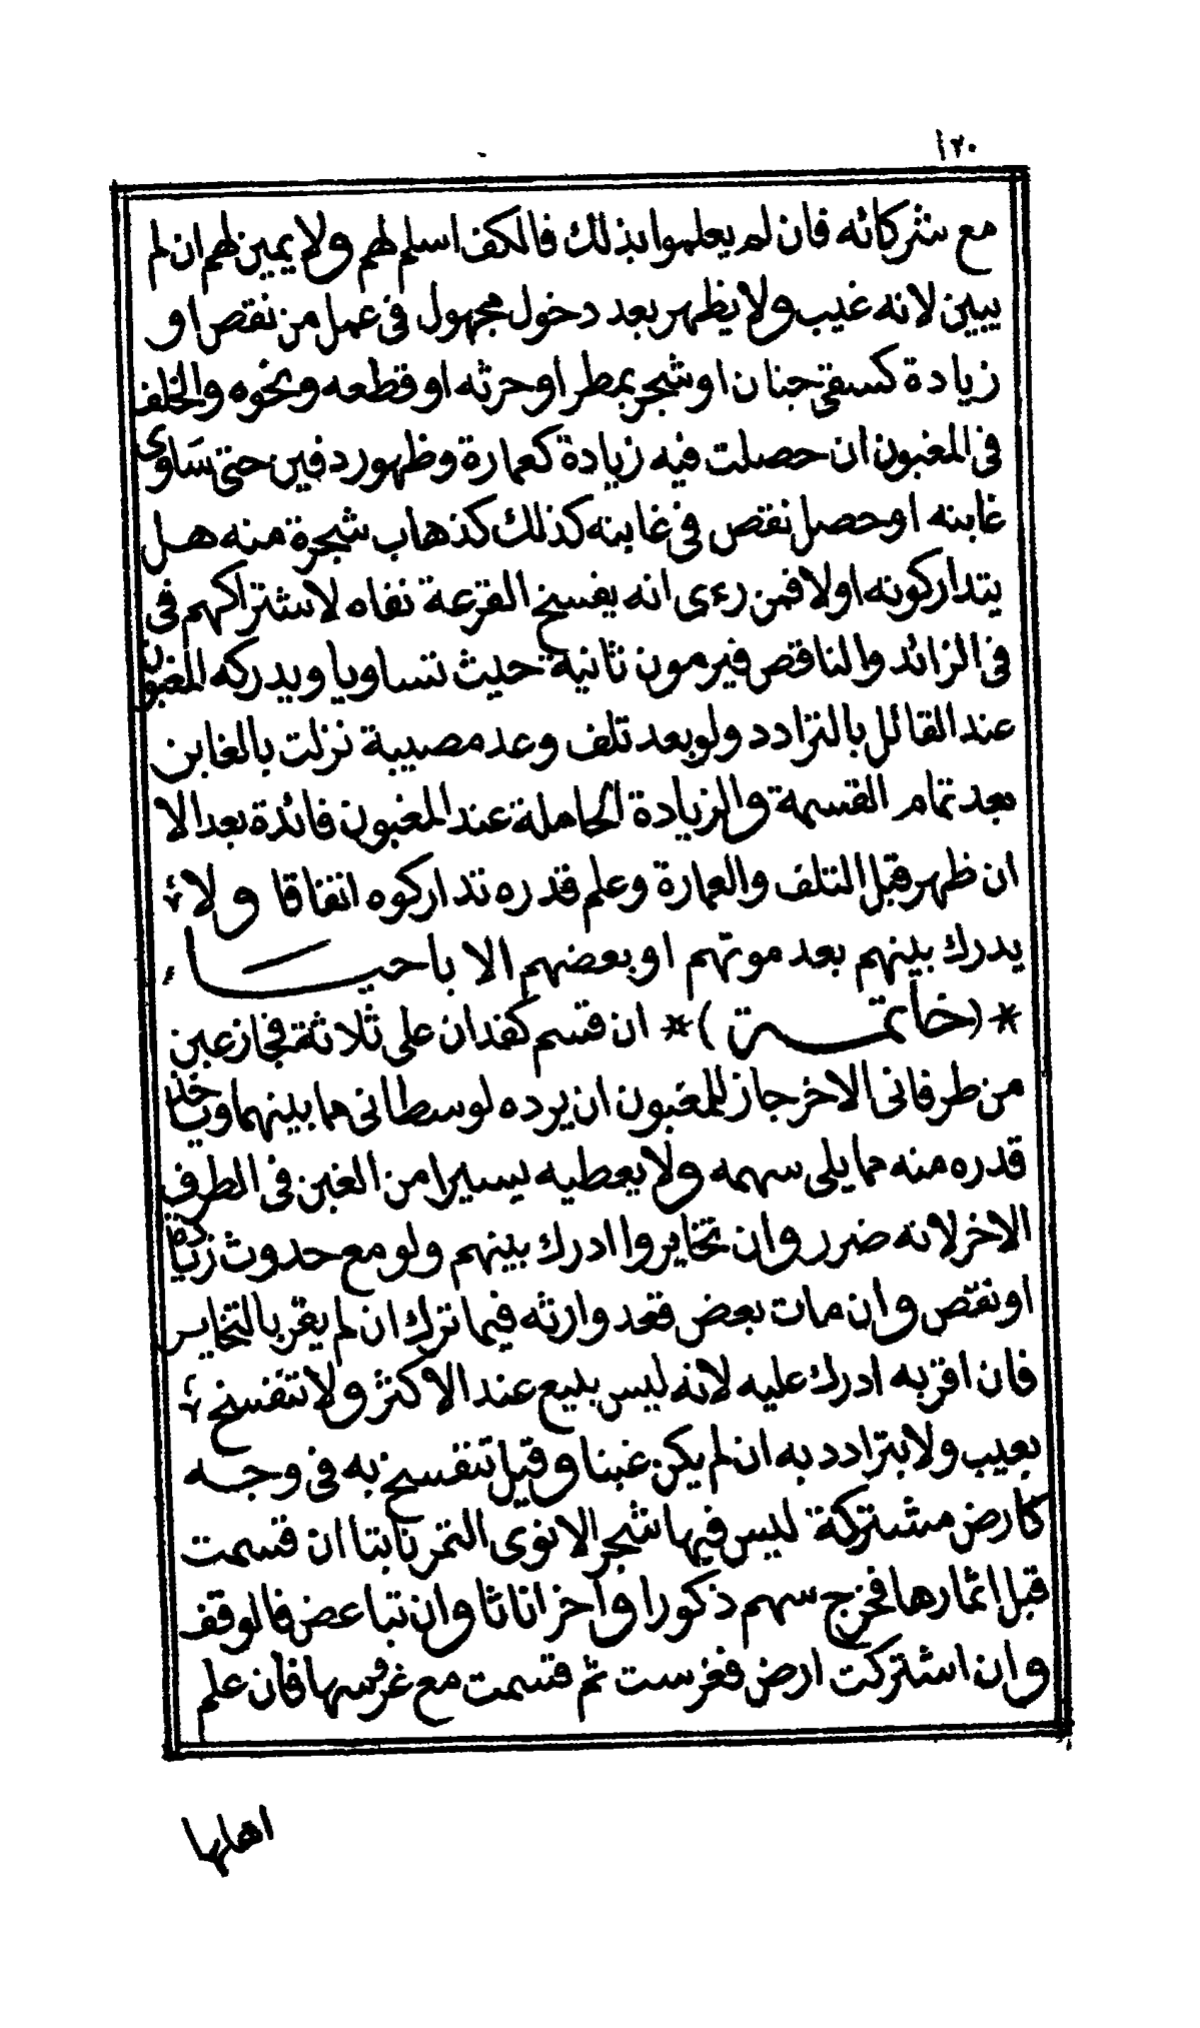 ١٢٠
مع شركائه فان لم يعلموا بذلك فالكف اسلم لهم ولا يمين لهم ان لم
يبين لانه غيب ولا يظهر بعد دخول مجهول فى عمل من نقص او
زيادة كسقى جنان او شجر بمطر او حرثه او قطعه ونحوه والخلف
فى المغبون ان حصلت فيه زيادة كعمارة وظهور دفين حتى ساوى
غابنه او حصل نقص فى غابنه كذلك كذهاب شجرة منه هل
يتداركونه اولا فمن رءى انه يفسخ القرعة نفاه لاشتراكهم فى
فى الزائد والناقص فيرمون ثانية حيث تساويا ويدركه المغبون
عند القائل بالتزادد ولو بعد تلف وعد مصيبة نزلت بالغابن
بعد تمام القسمة والزيادة الحاملة عند المغبون فائدة بعد الا
ان ظهر قبل التلف والعمارة وعلم قدره تداركوه اتفاقا ولا
يدرك بينهم بعد موتهم او بعضهم الا باحيا
*(خاتمة)* ان قسم كفدان على ثلاثة فجاز عين
من طرفانى الاخر جاز للمغبون ان يرده لوسطانى مما بينهما وياخذ
قدره منه مما يلى سهمه ولا يعطيه يسيرا من الغبن فى الطرف
الاخر لانه ضرر وان تخايروا ادرك بينهم ولو مع حدوث زيادة
او نقص وان مات بعض قعد وارثه فيما ترك ان لم يقر بالتخاير
فان اقر به ادرك عليه لانه ليس ببيع عند الاكثر ولا تنفسخ
بعيب ولا بتزادد به ان لم يكن غبنا وقيل تنفسخ به فى وجه
كارض مشتركة ليس فيها شجر الا نوى التمر نابتا ان قسمت
قبل اثمارها فخرج سهم ذكورا واخر اناثا وان تباعض فالوقف
وان اشتركت ارض فغرست ثم قسمت مع غرسها فان علم
اهلها